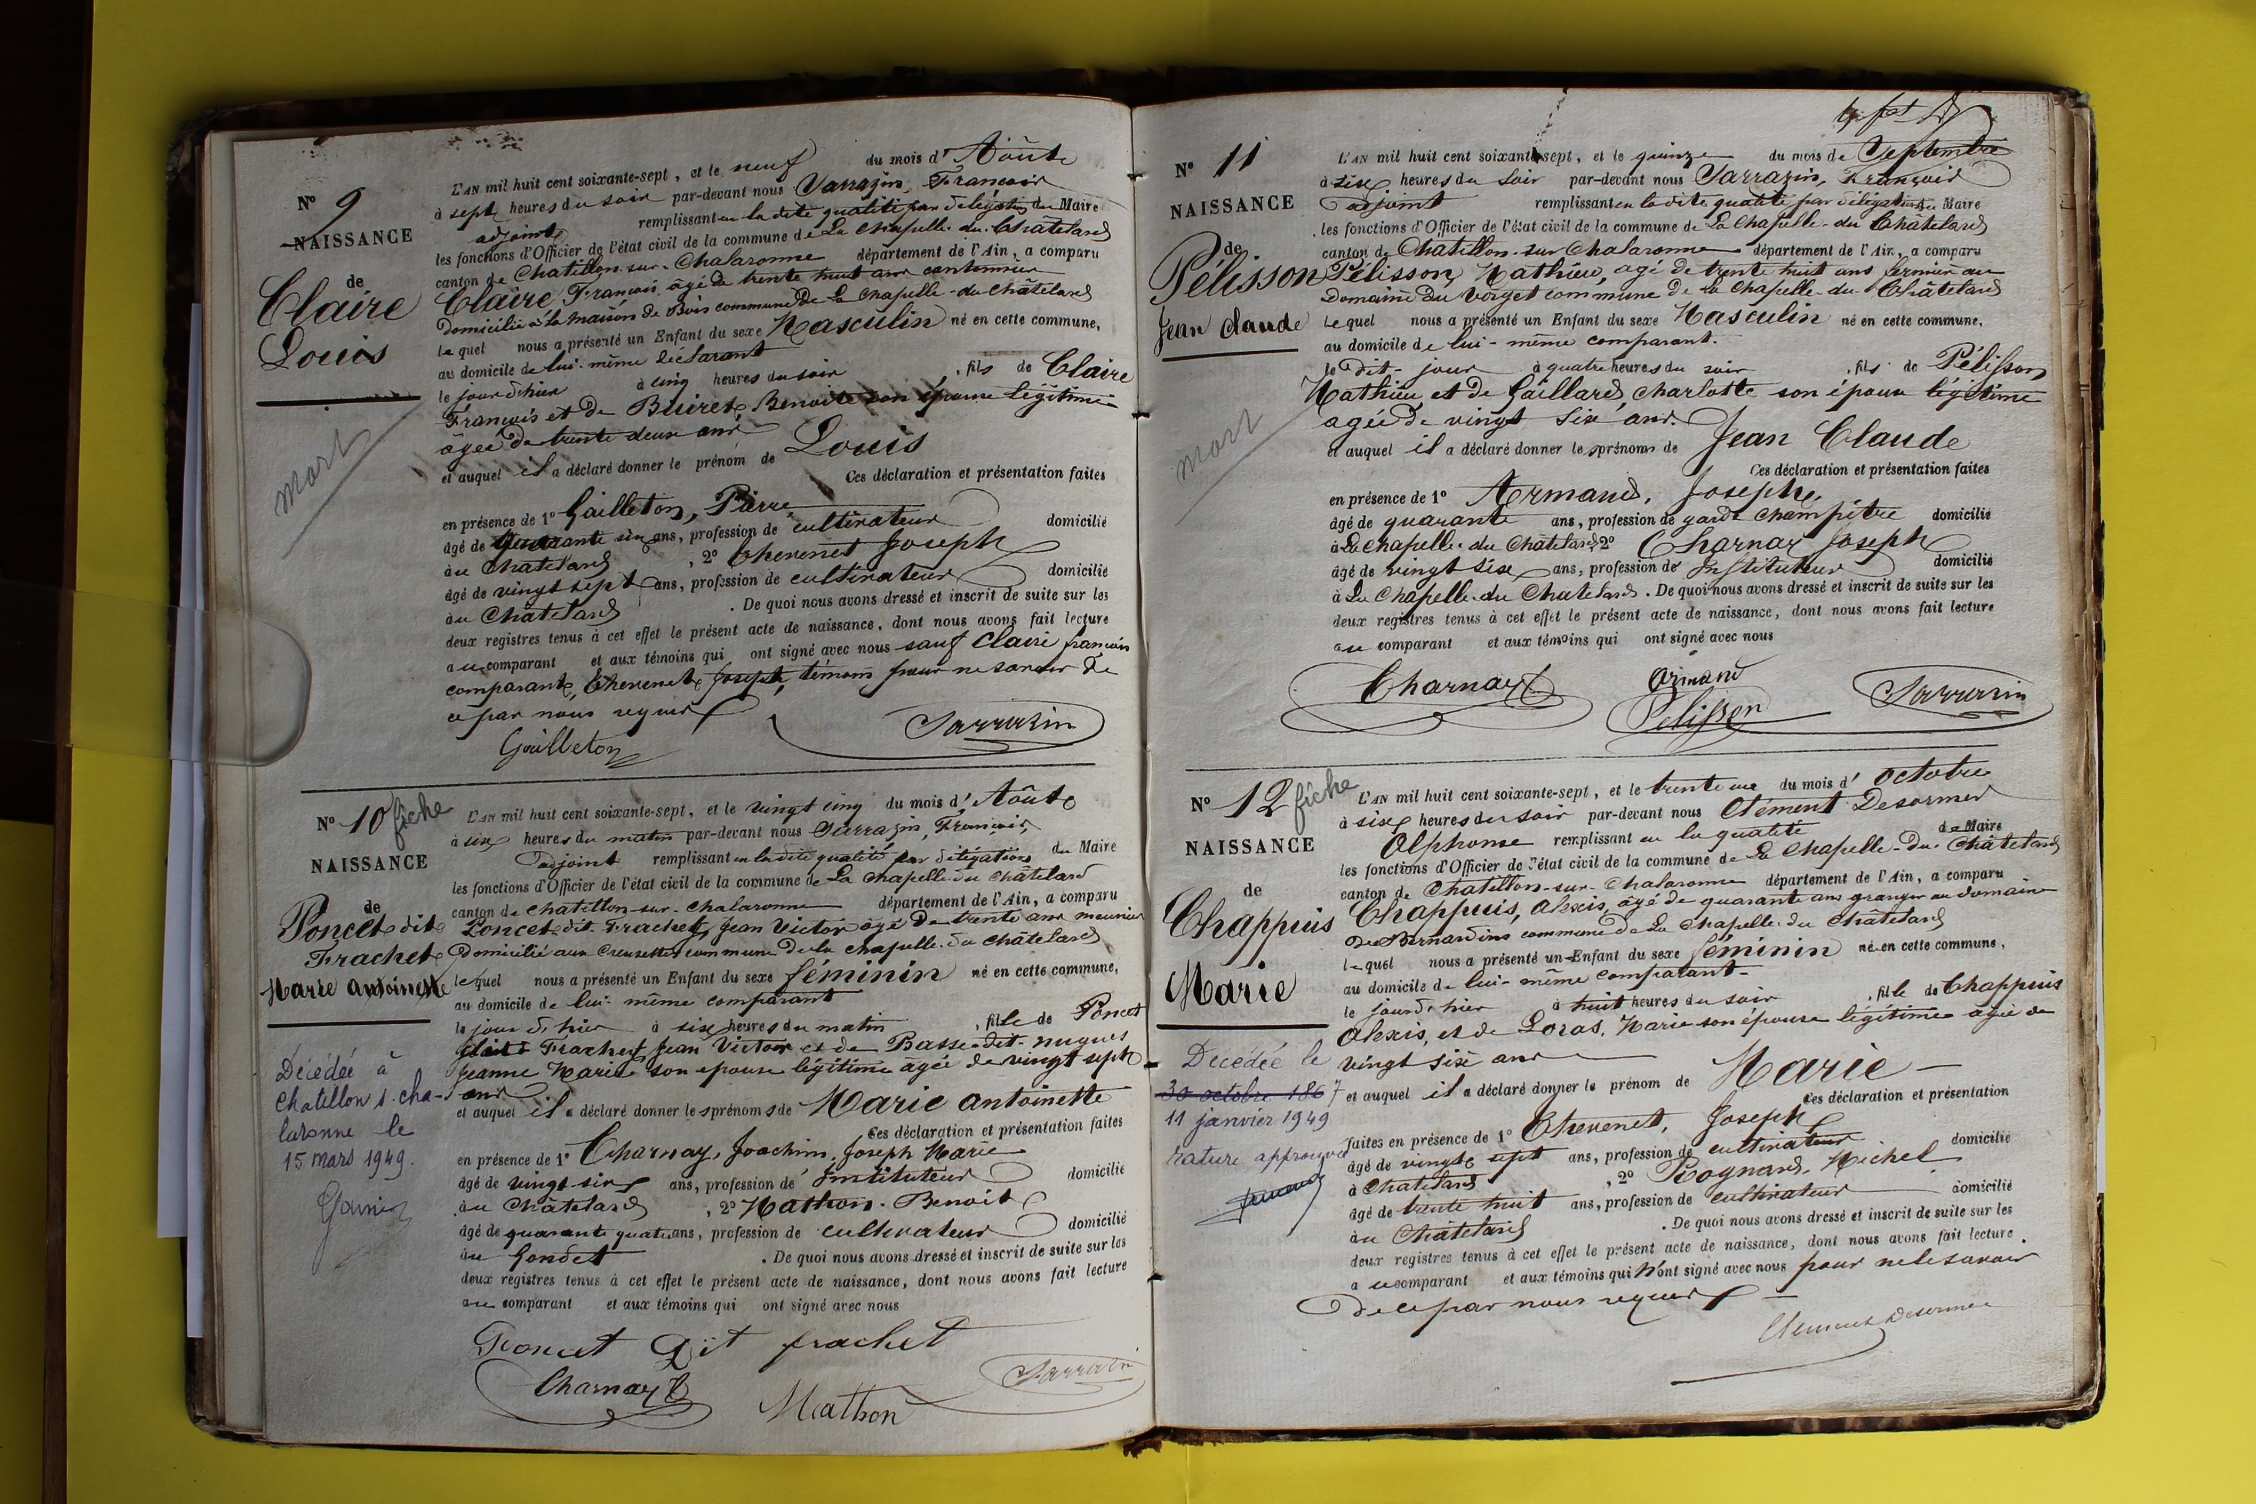 N° 9
NAISSANCE
de
Claire
Louis
mort
L'AN mil huit cent soixante-sept, et le neuf du mois d'Aoûte
à sept heures du soir par-devant nous Sarrazin, François
adjoint remplissant en la dite qualité par délégation du Maire
les fonctions d'Officier de l'état civil de la commune de La Chapelle-du-Châtelard
canton de Chatillon-sur-Chalaronne département de l'Ain, a comparu
Claire François âgé de trente huit ans cantonnier
domicilié à la maison de Bois commune de La Chapelle-du-Châtelard
lequel nous a présenté un Enfant du sexe Masculin né en cette commune,
au domicile de lui-même déclarant
le jour d'hier à cinq heures du soir, fils de Claire
François et de Buiret Benoite son épouse légitime
âgée de trente deux ans
et auquel il a déclaré donner le prénom de Louis
Ces déclaration et présentation faites
en présence de 1° Gailleton, Pierre
âgé de quarante six ans, profession de cultivateur domicilié
au Châtelard, 2° Chevenet Joseph
âgé de vingt sept ans, profession de cultivateur domicilié
au Châtelard. De quoi nous avons dressé et inscrit de suite sur les
deux registres tenus à cet effet le présent acte de naissance, dont nous avons fait lecture
au comparant et aux témoins qui ont signé avec nous sauf Claire françois
comparant, Chevenet Joseph, témoin pour ne savoir de
ce par nous requis
Gailleton Sarrazin
N° 10 fiche
NAISSANCE
de
Poncet dit
Frachet
Marie antoinette
Décédée à
Chatillon s. cha-
laronne le
15 mars 1949.
L'AN mil huit cent soixante-sept, et le vingt cinq du mois d'Aoûte
à six heures du matin par-devant nous Sarrazin, François,
adjoint remplissant en la dite qualité par délégation du Maire
les fonctions d'Officier de l'état civil de la commune de La chapelle du Châtelard
canton de chatillon-sur-chalaronne département de l'Ain, a comparu
Poncet dit Frachet, Jean Victor âgé de trente ans meunier
domicilié aux Creusettes commune de la chapelle-du Châtelard
lequel nous a présenté un Enfant du sexe féminin né en cette commune,
au domicile de lui-même comparant
le jour d'hier à six heures du matin, fille de Poncet
dit Frachet Jean Victor et de Basset dit nugues
Jeanne Marie son épouse légitime âgée de vingt sept
ans
et auquel il a déclaré donner les prénoms de Marie antoinette
Ces déclaration et présentation faites
en présence de 1° Charnay, Joachim, Joseph Marie
âgé de vingt-six ans, profession de Instituteur domicilié
au Châtelard, 2° Mathon Benoit
âgé de quarante quatre ans, profession de cultivateur domicilié
au Gondet. De quoi nous avons dressé et inscrit de suite sur les
deux registres tenus à cet effet le présent acte de naissance, dont nous avons fait lecture
au comparant et aux témoins qui ont signé avec nous
Poncet Dit frachet
Charnay Sarrazin
Mathon
N° 11
NAISSANCE
de
Pélisson
Jean Claude
mort
L'AN mil huit cent soixante-sept, et le quinze du mois de Septembre
à six heures du soir par-devant nous Sarrazin, François
adjoint remplissant en la dite qualité par délégation du Maire
les fonctions d'Officier de l'état civil de la commune de La Chapelle-du Châtelard
canton de Chatillon-sur-Chalaronne département de l'Ain, a comparu
Pélisson, Mathieu, âgé de trente huit ans fermier au
Domaine du Verget commune de La Chapelle-du-Châtelard
lequel nous a présenté un Enfant du sexe Masculin né en cette commune,
au domicile de lui-même comparant.
le dit jour à quatre heures du soir, fils de Pélisson
Mathieu et de Gaillard, Charlotte son épouse légitime
agée de vingt six ans.
et auquel il a déclaré donner les prénoms de Jean Claude
Ces déclaration et présentation faites
en présence de 1° Armand, Joseph,
âgé de quarante ans, profession de garde champêtre domicilié
à La chapelle-du Châtelard, 2° Charnay Joseph
âgé de vingt six ans, profession de Instituteur domicilié
à La Chapelle-du Châtelard. De quoi nous avons dressé et inscrit de suite sur les
deux registres tenus à cet effet le présent acte de naissance, dont nous avons fait lecture
au comparant et aux témoins qui ont signé avec nous
Charnay Armand Sarrazin
Pelisson
N° 12 fiche
NAISSANCE
de
Chappuis
Marie
Décédée le
30 octobre 1867
11 janvier 1949
rature approuvée
L'AN mil huit cent soixante-sept, et le trente un du mois d'octobre
à six heures du soir par-devant nous Clément Desormes
Alphonse remplissant en la qualité de Maire
les fonctions d'Officier de l'état civil de la commune de La Chapelle-du-Châtelard
canton de Chatillon-sur-Chalaronne département de l'Ain, a comparu
Chappuis, Alexis, âgé de quarante ans granger au domaine
des Bernardins commune de La Chapelle du Châtelard
lequel nous a présenté un Enfant du sexe féminin né en cette commune,
au domicile de lui-même comparant
le jour d'hier à huit heures du soir, fille de Chappuis
Alexis, et de Loras, Marie son épouse légitime agée de
vingt six ans
et auquel il a déclaré donner le prénom de Marie
Ces déclaration et présentation
faites en présence de 1° Chevenet, Joseph
âgé de vingt sept ans, profession de cultivateur domicilié
à Chatelard, 2° Rognard, Michel
âgé de trente huit ans, profession de cultivateur domicilié
au Châtelard. De quoi nous avons dressé et inscrit de suite sur les
deux registres tenus à cet effet le présent acte de naissance, dont nous avons fait lecture
au comparant et aux témoins qui n'ont signé avec nous pour ne le savoir
de ce par nous requis
Clément Desormes